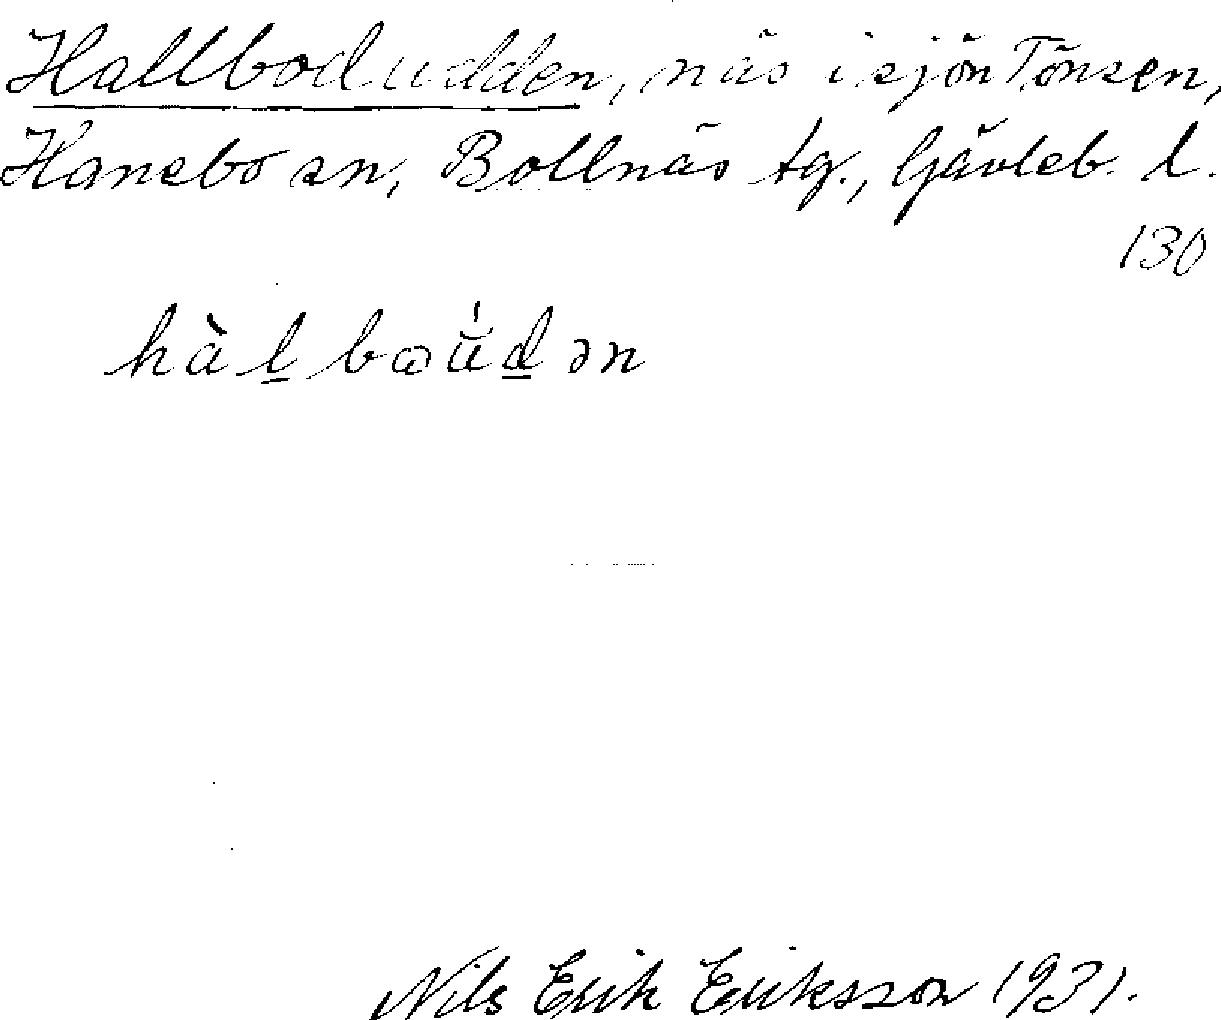 Hallbodudden, näs i sjön Tönsen,
Hanebo sn, Bollnäs tg., Gävleb. l.
130
hàl̲bωŭ́d̲ən
Nils Erik Eriksson 1931.